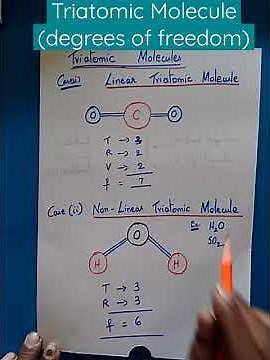 Triatomic Molecule
(degrees of freedom)
Triatomic Molecules
Case(i) Linear Triatomic Molecule
O C O
T → 3
R → 2
V → 2
f = 7
Case (ii) Non-Linear Triatomic Molecule
Ex: H₂O
SO₂
O
H H
T → 3
R → 3
f = 6